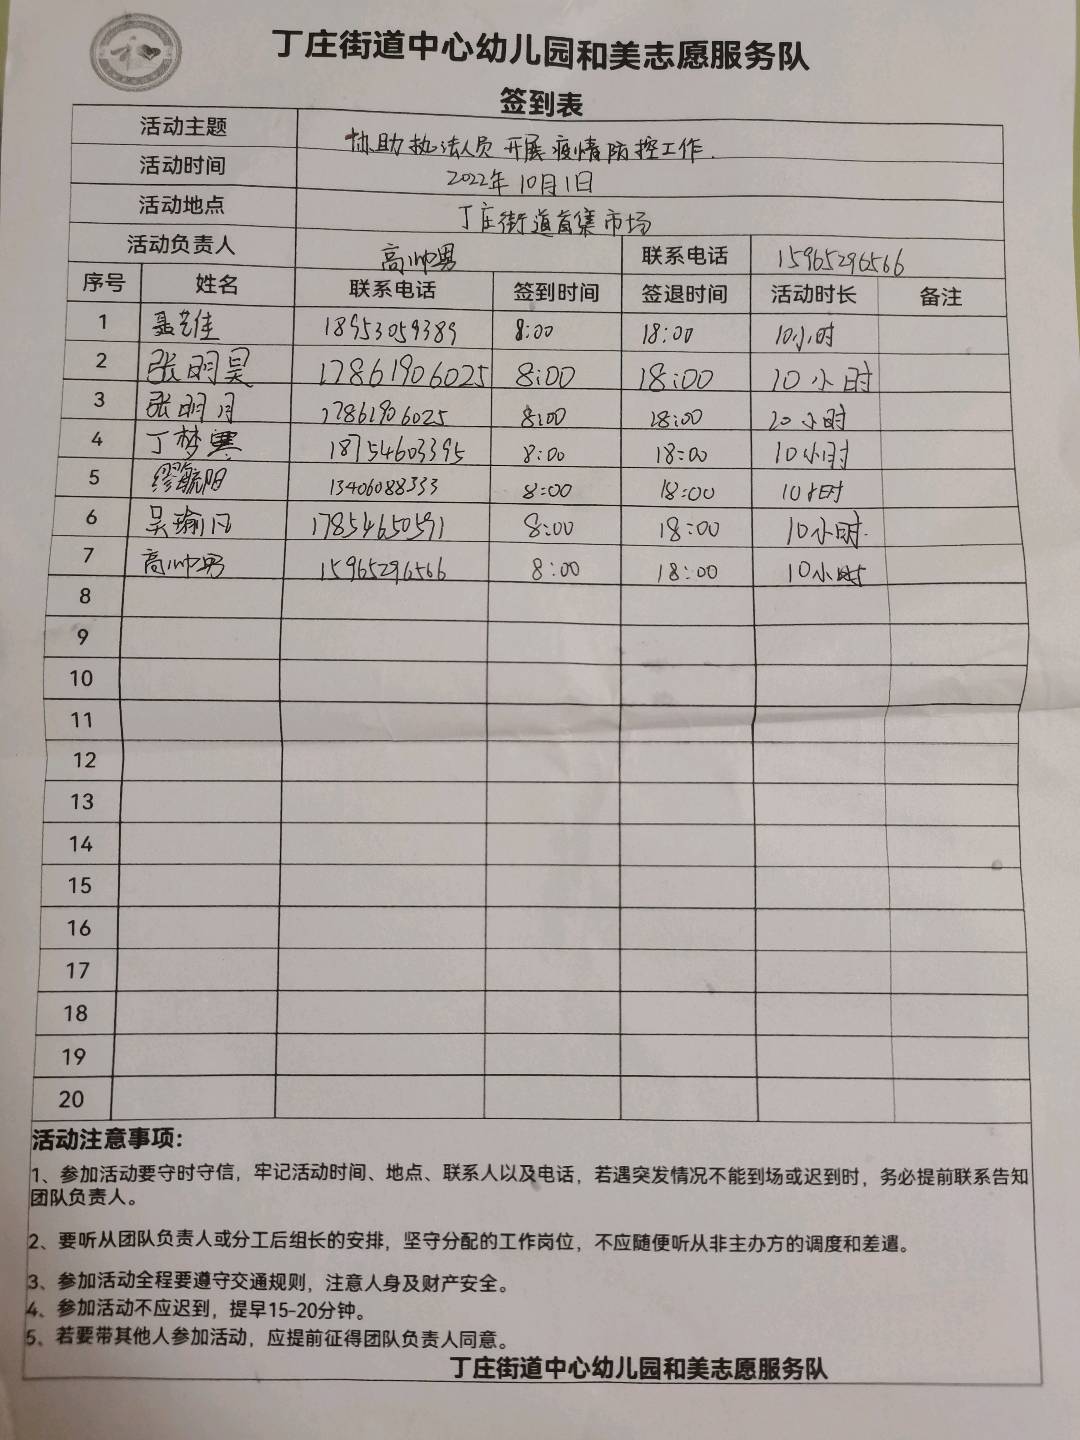 和
丁庄街道中心幼儿园和美志愿服务队
签到表
活动主题 协助执法人员开展疫情防控工作.
活动时间 2022年10月1日
活动地点 丁庄街道首集市场
活动负责人 高帅男 联系电话 15965296566
序号 姓名 联系电话 签到时间 签退时间 活动时长 备注
1 聂艺佳 18953059389 8:00 18:00 10小时
2 张明昊 17861906025 8:00 18:00 10小时
3 张明月 17861906025 8:00 18:00 10小时
4 丁梦寒 18754603395 8:00 18:00 10小时
5 缪毓阳 13406088333 8:00 18:00 10小时
6 吴瑜凡 17854650591 8:00 18:00 10小时.
7 高帅男 15965296566 8:00 18:00 10小时
8
9
10
11
12
13
14
15
16
17
18
19
20
活动注意事项:
1、参加活动要守时守信，牢记活动时间、地点、联系人以及电话，若遇突发情况不能到场或迟到时，务必提前联系告知
团队负责人。
2、要听从团队负责人或分工后组长的安排，坚守分配的工作岗位，不应随便听从非主办方的调度和差遣。
3、参加活动全程要遵守交通规则，注意人身及财产安全。
4、参加活动不应迟到，提早15-20分钟。
5、若要带其他人参加活动，应提前征得团队负责人同意。
丁庄街道中心幼儿园和美志愿服务队